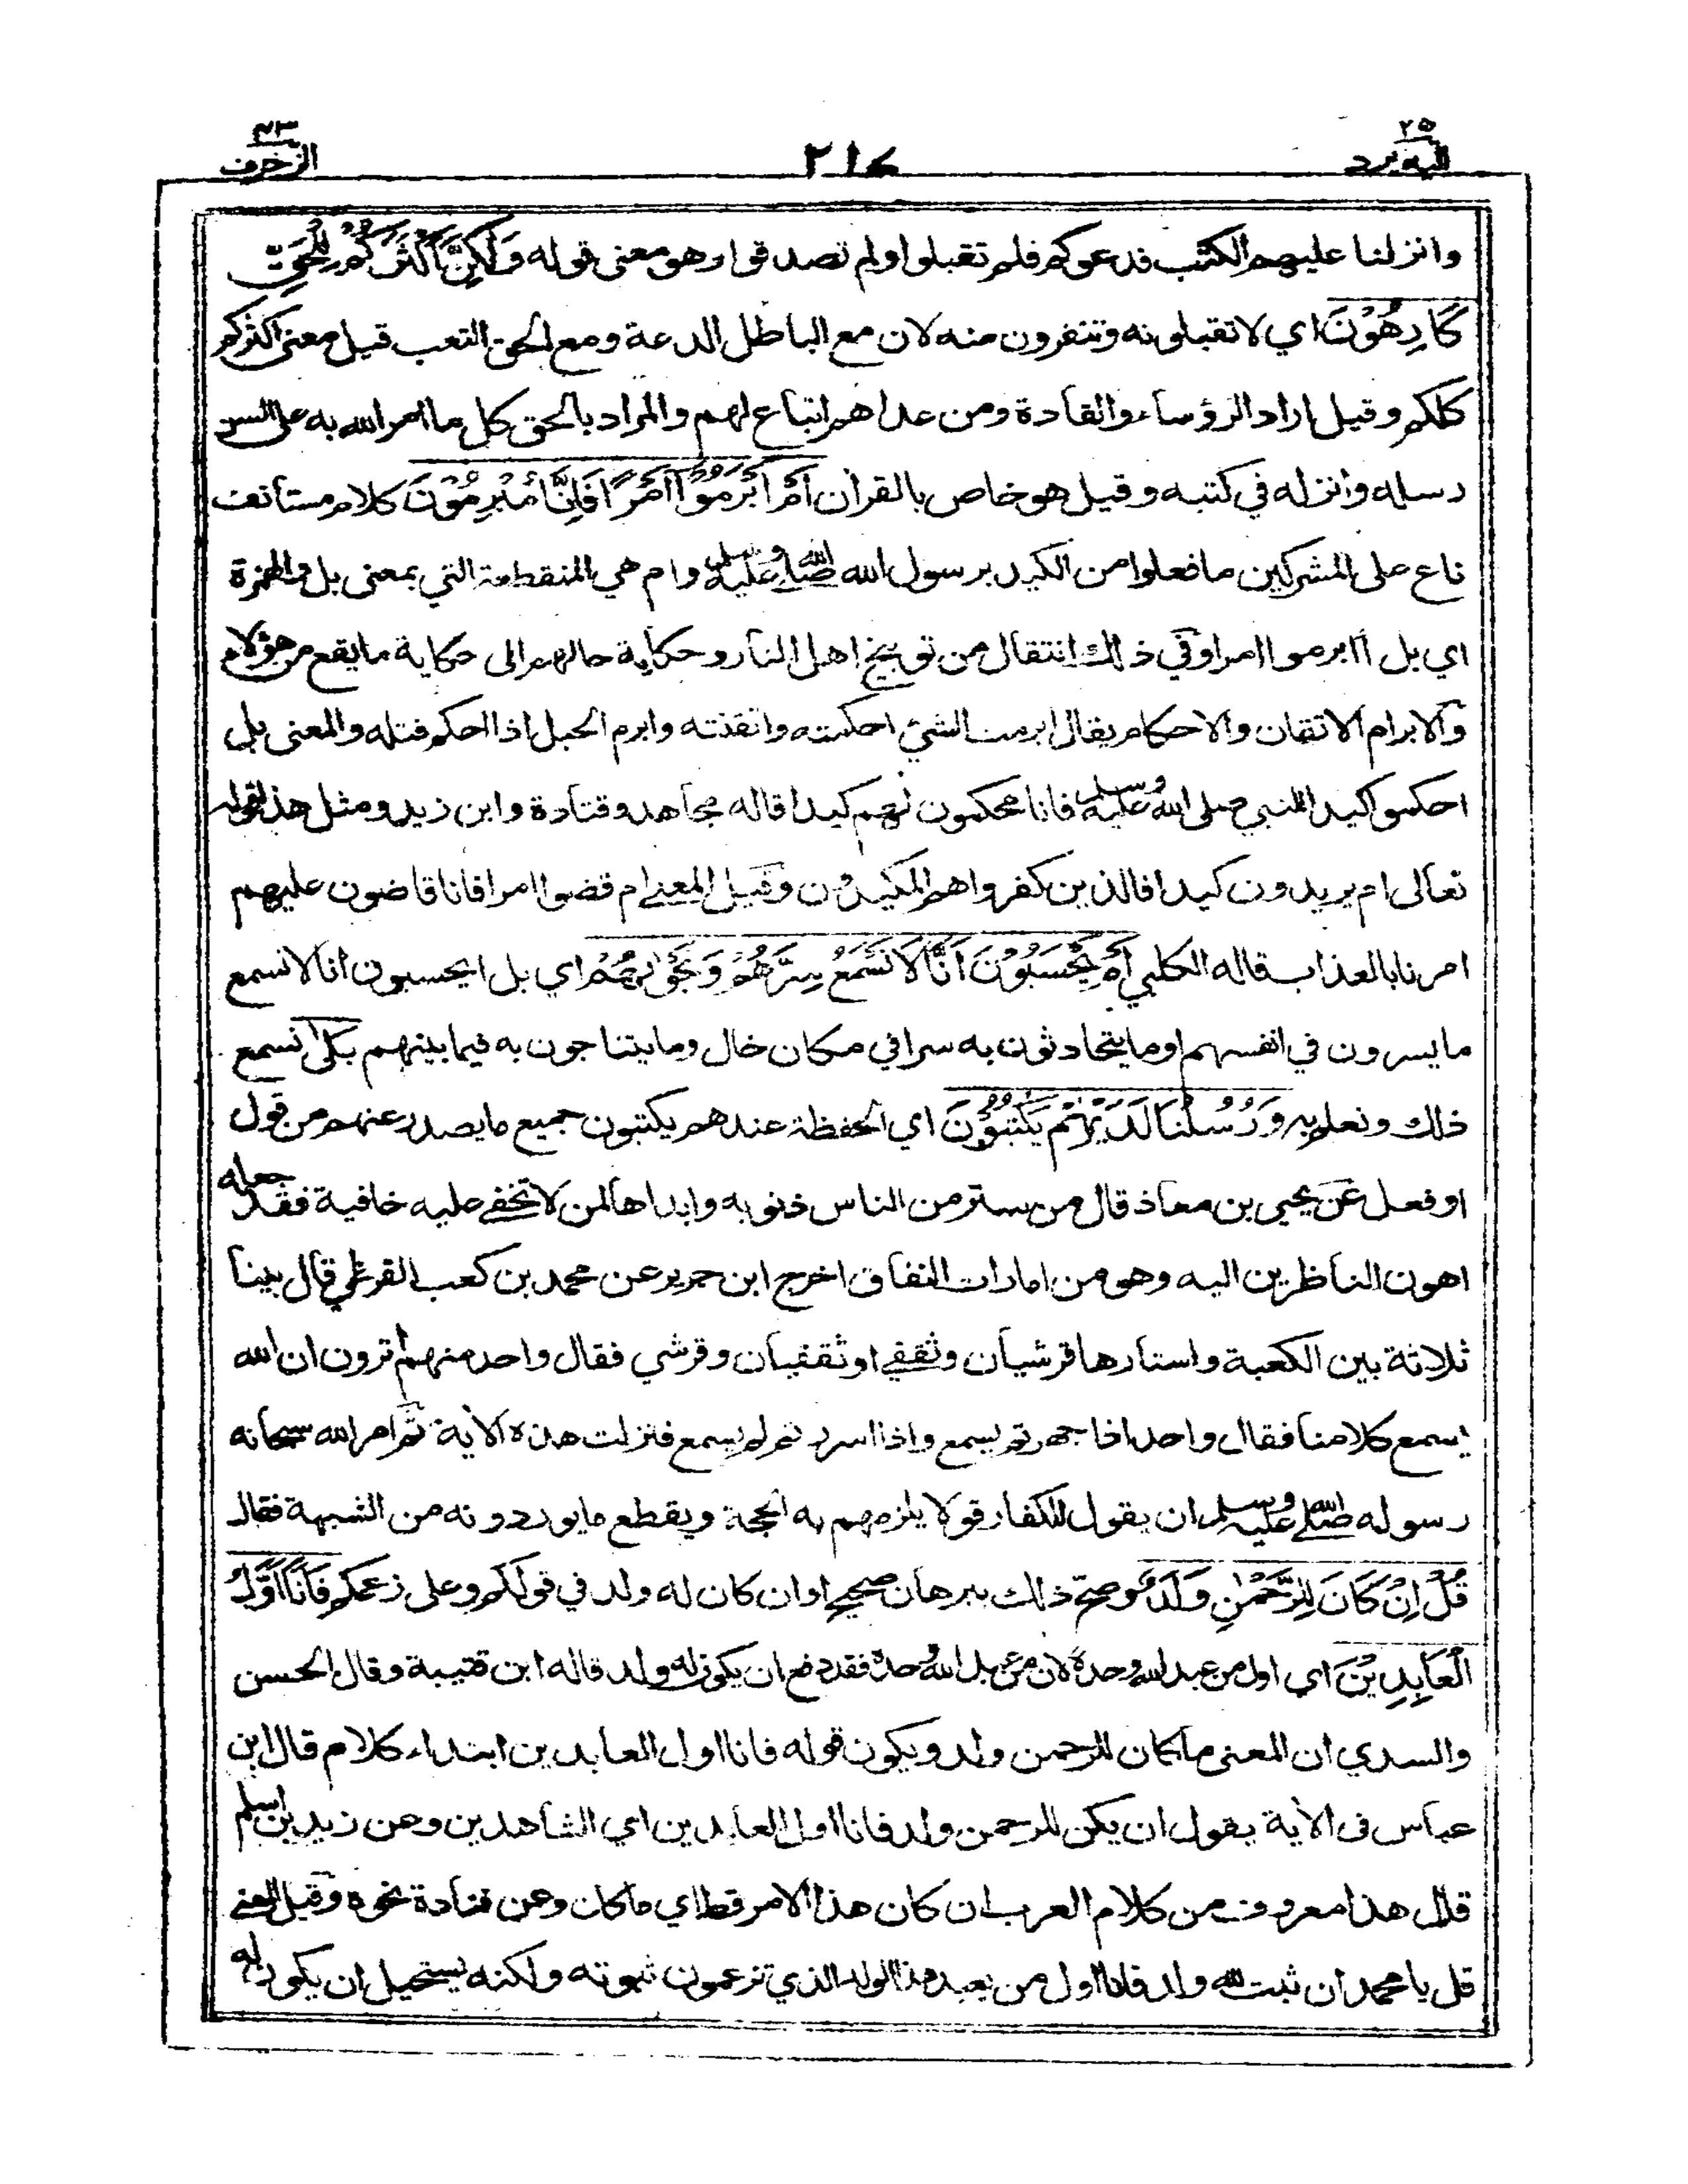 ٢٥
اليه يرد
٢١٧
٤٣
الزخرف
وانزلنا عليهم الكتب فدعوكم فلم تقبلوا ولم تصدقوا وهو معنى قوله وَلَكِنَّ أَكْثَرَكُمْ لِلْحَقِّ
كَارِهُوْنَ اي لا تقبلونه وتنفرون منه لان مع الباطل الدعة ومع الحق التعب قيل معنى اكثركم
كلكم وقيل اراد الرؤساء والقادة ومن عداهم اتباع لهم والمراد بالحق كل ما امر الله به على السن
رسله وانزله في كتبه وقيل هو خاص بالقرأن أَمْ أَبْرَمُوْآ أَمْرًا فَإِنَّا مُبْرِمُوْنَ كلام مستأنف
ناع على المشركين ما فعلوا من الكيد برسول الله صلى الله عليه وسلم وام هي المنقطعة التي بمعنى بل والهمزة
اي بل أابرموا امرا وفي ذلك انتقال من توبيخ اهل النار وحكاية حالهم الى حكاية ما يقع من هؤلاء
والابرام الاتقان والاحكام يقال ابرمت الشيئ احكمته واتقنته وابرم الحبل اذا احكم فتله والمعنى بل
احكموا كيدا للنبي صلى الله عليه وسلم فانا محكمون لهم كيدا قاله مجاهد وقتادة وابن زيد ومثل هذا قوله
تعالى ام يريدون كيدا فالذين كفروا هم المكيدون وقيل المعنے ام قضوا امرا فانا قاضون عليهم
امرنا بالعذاب قاله الكلبي أَمْ يَحْسَبُوْنَ أَنَّا لَا نَسْمَعُ سِرَّهُمْ وَنَجْوٰىهُمْ اي بل ايحسبون انا لا نسمع
ما يسرون في انفسهم او ما يتحادثون به سرا في مكان خال وما يتناجون به فيما بينهم بَلَى نسمع
ذلك ونعلم به وَرُسُلُنَا لَدَيْهِمْ يَكْتُبُوْنَ اي الحفظة عندهم يكتبون جميع ما يصدر عنهم من قول
او فعل عن يحيى بن معاذ قال من ستر من الناس ذنوبه وابداها لمن لا تخفے عليه خافية فقد جعله
اهون الناظرين اليه وهو من امارات النفاق اخرج ابن جرير عن محمد بن كعب القرظي قال بينا
ثلاثة بين الكعبة واستارها قرشيان وثقفے او ثقفيان وقرشي فقال واحد منهم أترون ان الله
يسمع كلامنا فقال واحد اذا جهرتم يسمع واذا اسررتم لم يسمع فنزلت هذه الأية ثم امر الله سبحانه
رسوله صلى الله عليه وسلم ان يقول للكفار قولا يلزمهم به الحجة ويقطع ما يوردونه من الشبهة فقال
قُلْ إِنْ كَانَ لِلرَّحْمٰنِ وَلَدٌ وصح ذلك ببرهان صحيح او ان كان له ولد في قولكم وعلى زعمكم فَأَنَا أَوَّلُ
الْعَابِدِيْنَ اي اول من عبد الله وحده لان من عبد الله وحده فقد دفع ان يكون له ولد قاله ابن قتيبة وقال الحسن
والسدي ان المعنى ما كان للرحمن ولد ويكون قوله فانا اول العابدين ابتداء كلام قال ابن
عباس فى الأية يقول ان يكن للرحمن ولد فانا اول العابدين اي الشاهدين وعن زيد بن اسلم
قال هذا معروف من كلام العرب ان كان هذا الامر قط اي ما كان وعن قتادة نحوه وقيل المعنے
قل يا محمد ان ثبت لله ولد فانا اول من يعبد هذا الولد الذي تزعمون ثبوته ولكنه يستحيل ان يكون له